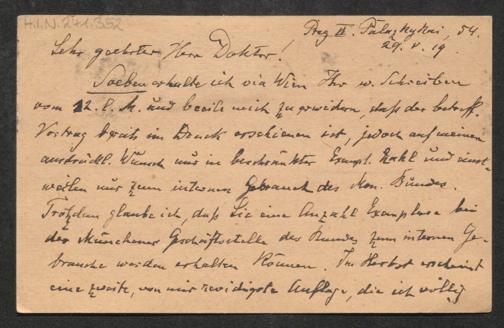 H.I.N. 271.352
Prag II. Palackykai, 54.
29. V. 19
Sehr geehrter Herr Doktor!
Soeben erhalte ich via Wien Ihr w. Schreiben
vom 12. l. M. und beeile mich zu erwidern, daß der betreff.
Vortrag bereits im Druck erschienen ist, jedoch auf meinen
ausdrückl. Wunsch nur in beschränkter Exempl. Zahl und einst-
weilen nur zum internen Gebrauch des Mon. Bundes.
Trotzdem glaube ich, daß Sie eine Anzahl Exemplare bei
der Münchener Geschäftsstelle des Bundes zum internen Ge-
brauche werden erhalten können. Im Herbst erscheint
eine zweite, von mir revidigte Auflage, die ich völlig